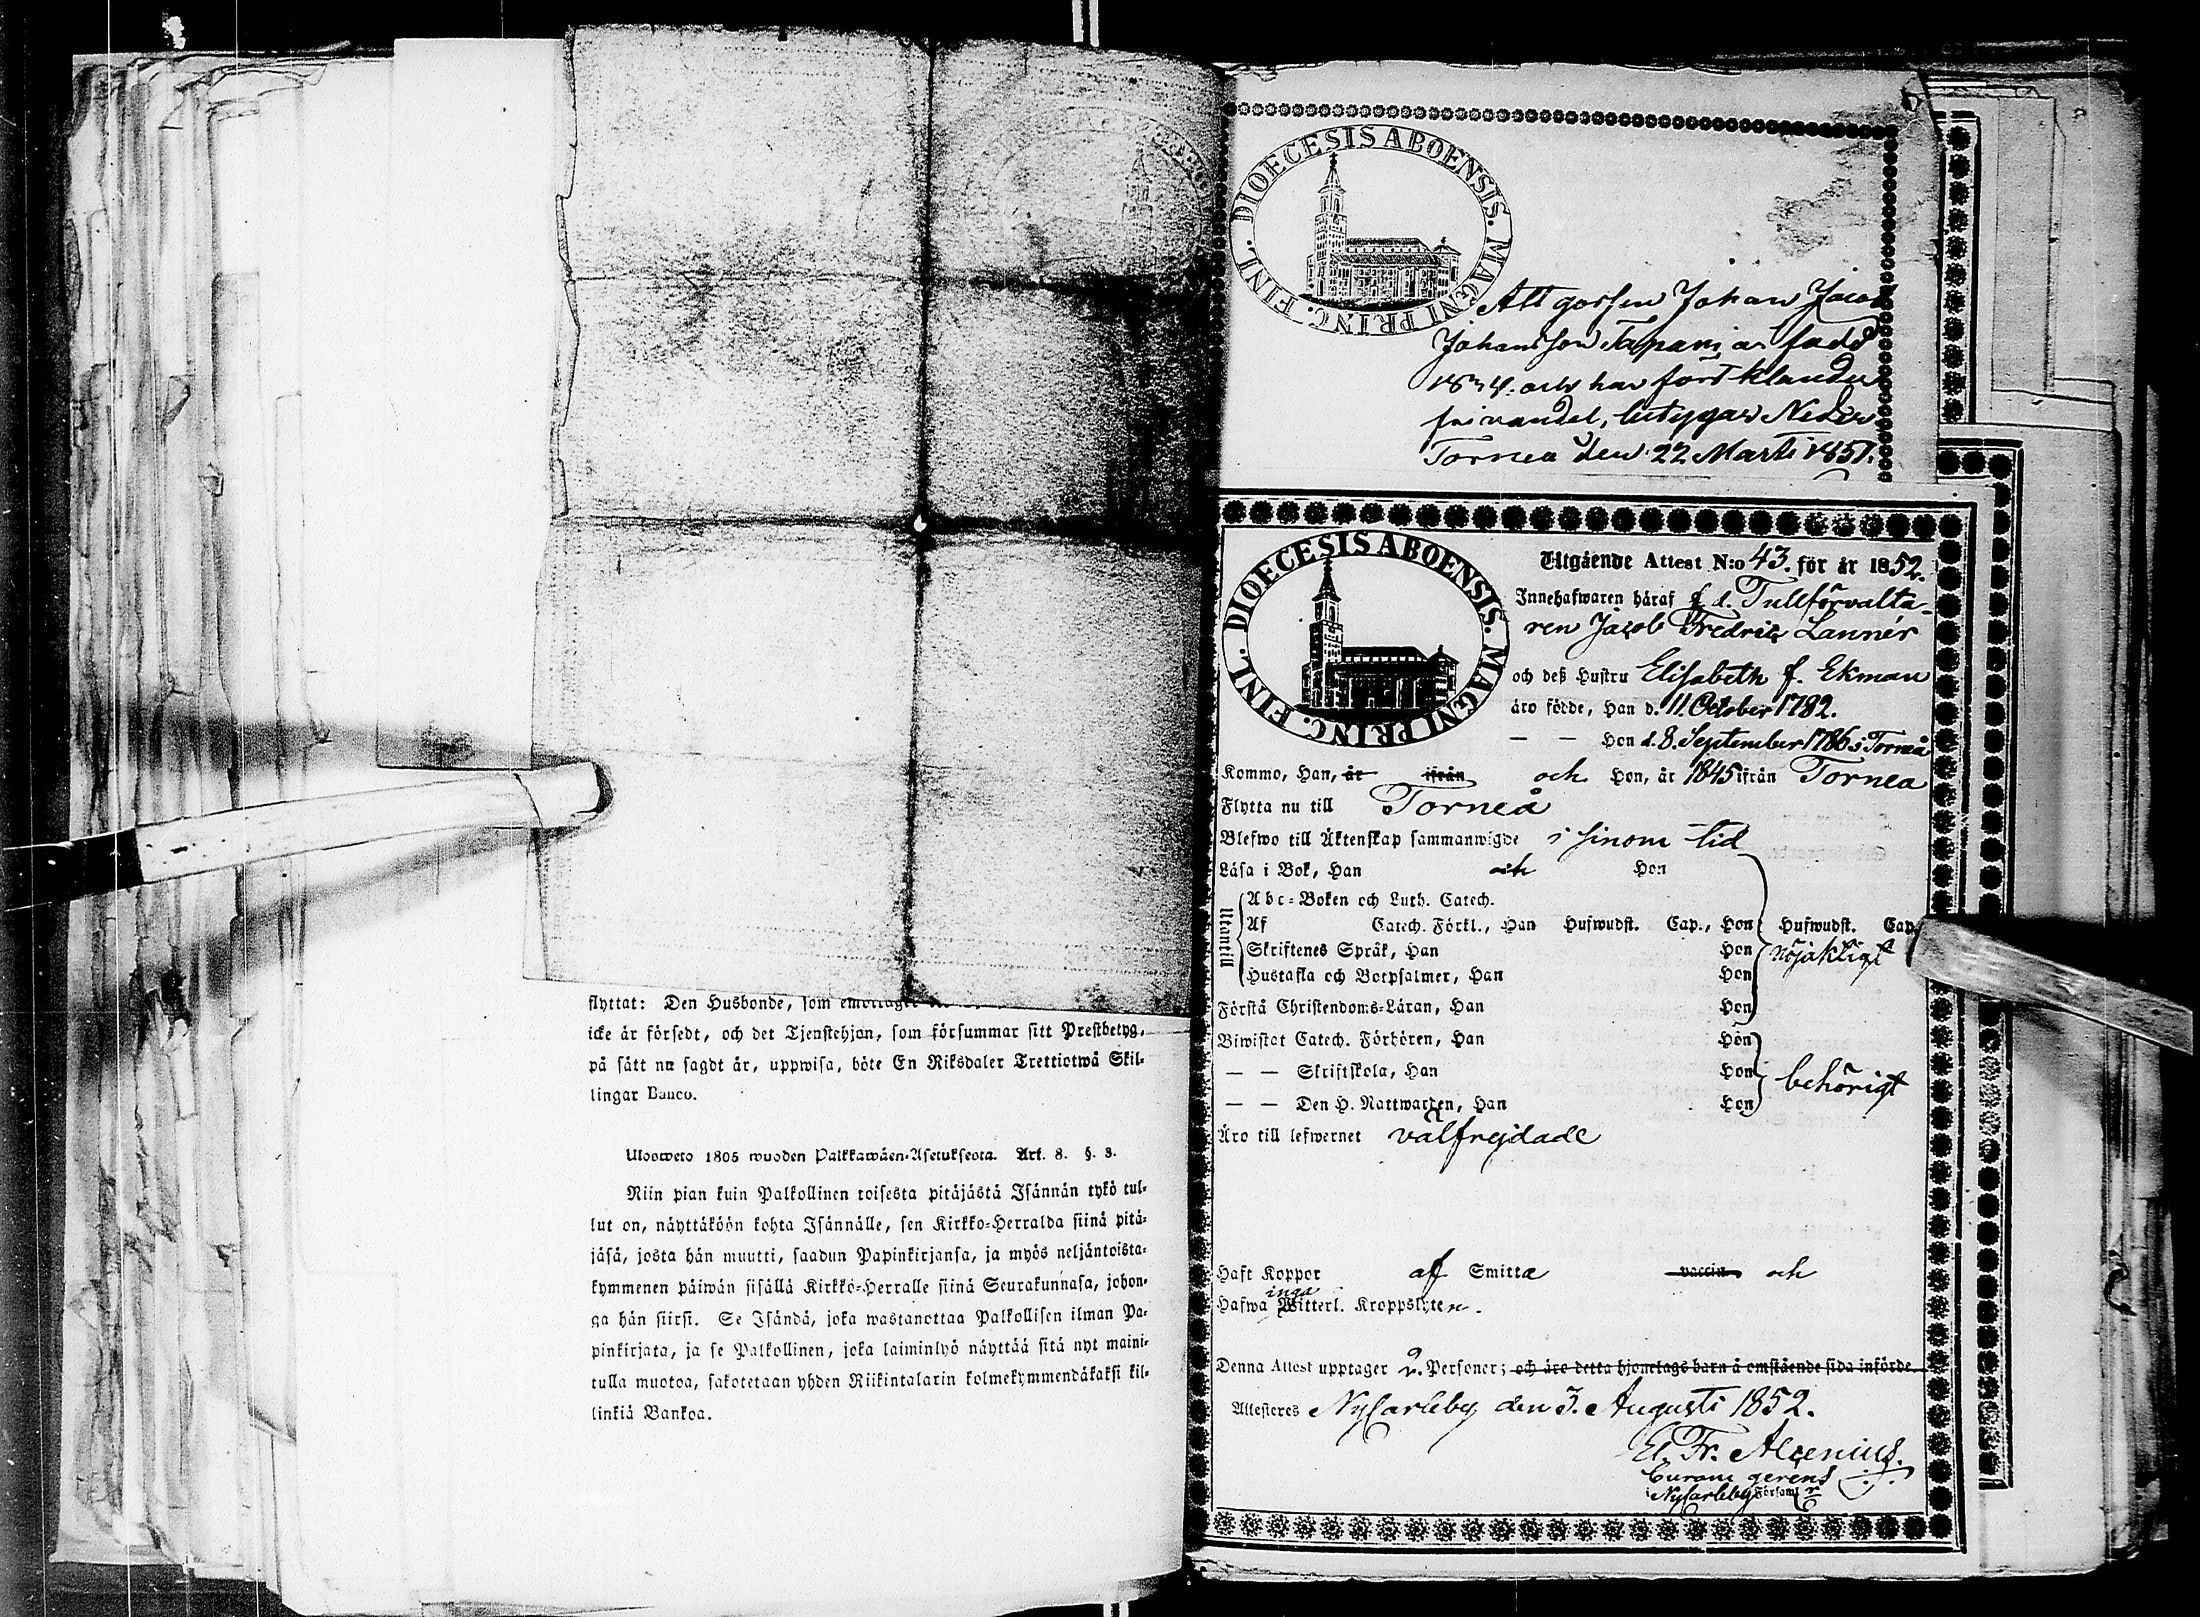 flyttat: Den Husbonde, som emottager
icke är försedt, och det Tjenstehjon, som försummar sitt Prestbetyg,
på sätt nu sagdt är, uppwisa, böte En Riksdaler Trettiotwå Skil-
lingar Banco.
Ulosweto 1805 wuoden Palkkawäen-Asetuksesta. Art. 8. §. 3.
Niin pian kuin Palkollinen toisesta pitäjästä Isännän tykö tul-
lut on, näyttäköön kohta Isännälle, sen Kirkko-Herralda siinä pitä-
jäsä, josta hän muutti, saadun Papinkirjansa, ja myös neljäntoista-
kymmenen päiwän sisällä Kirkko-Herralle siinä Seurakunnasa, johon-
ga hän siirsi. Se Isändä, joka wastanottaa Palkollisen ilman Pa-
pinkirjata, ja se Palkollinen, joka laiminlyö näyttää sitä nyt maini-
tulla muotoa, sakotetaan yhden Riikintalarin kolmekymmendäkaksi kil-
linkiä Bankoa.
DIOECESIS ABOENSIS. MAGNI PRINC. FINL.
Att gossen Johan Jacob
Johansson Tapani är född
1834. och har fört klander
fri vandel, betygar Neder
Torneå den 22 Marti 1851.
DIOECESIS ABOENSIS. MAGNI PRINC. FINL.
Utgående Attest N:o 43. för år 1852.
Innehafwaren häraf f. d. Tullförvalta-
ren Jacob Fredric Lannér
och deß Hustru Elisabeth f. Ekman
äro födde, Han d. 11 October 1782.
— — Hon d. 8. September 1786 i Torneå
Kommo, Han, är ifrån och Hon, år 1845 ifrån Tornea
Flytta nu till Torneå
Blefwo till Äktenskap sammanwigde i sinom tid
Läsa i Bok, Han och Hon
Utantill
Abc-Boken och Luth. Catech.
Af Catech. Förkl., Han Hufwudst. Cap., Hon Hufwudst. Cap.
Skriftenes Språk, Han Hon nöjaktigt
Hustafla och Botpsalmer, Han Hon
Förstå Christendoms-Läran, Han Hon
Biwistat Catech. Förhören, Han Hon
— — Skriftskola, Han Hon behörigt
— — Den H. Nattwarden, Han Hon
Äro till lefwernet välfrejdade
Haft Koppor af Smitta vaccin och
Hafwa inga Witterl. Kroppslyten.
Denna Attest upptager 2. Personer; och äro detta hjonelags barn å omstående sida införde
Attesteres Nycarleby den 3. Augusti 1852.
El. Fr. Alcenius.
Curam gerens
i Nycarleby Församl:r